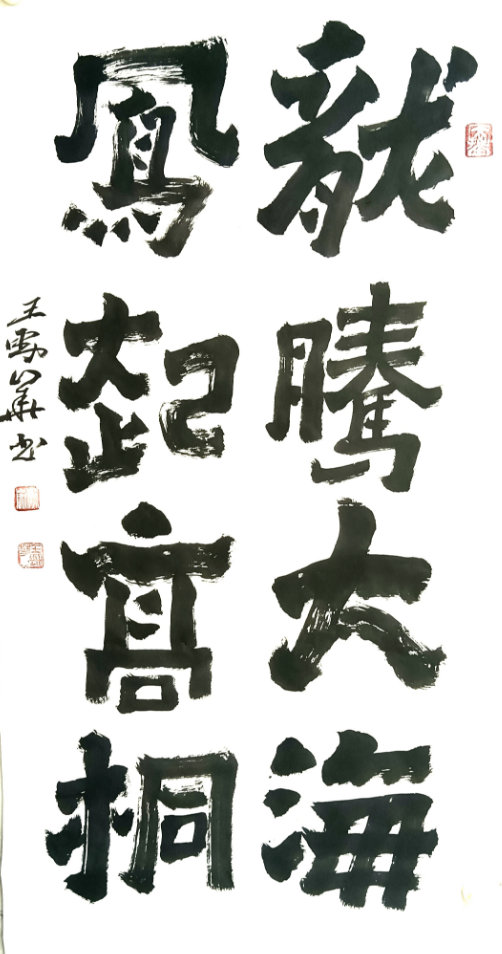 龍騰大海
鳳起高桐